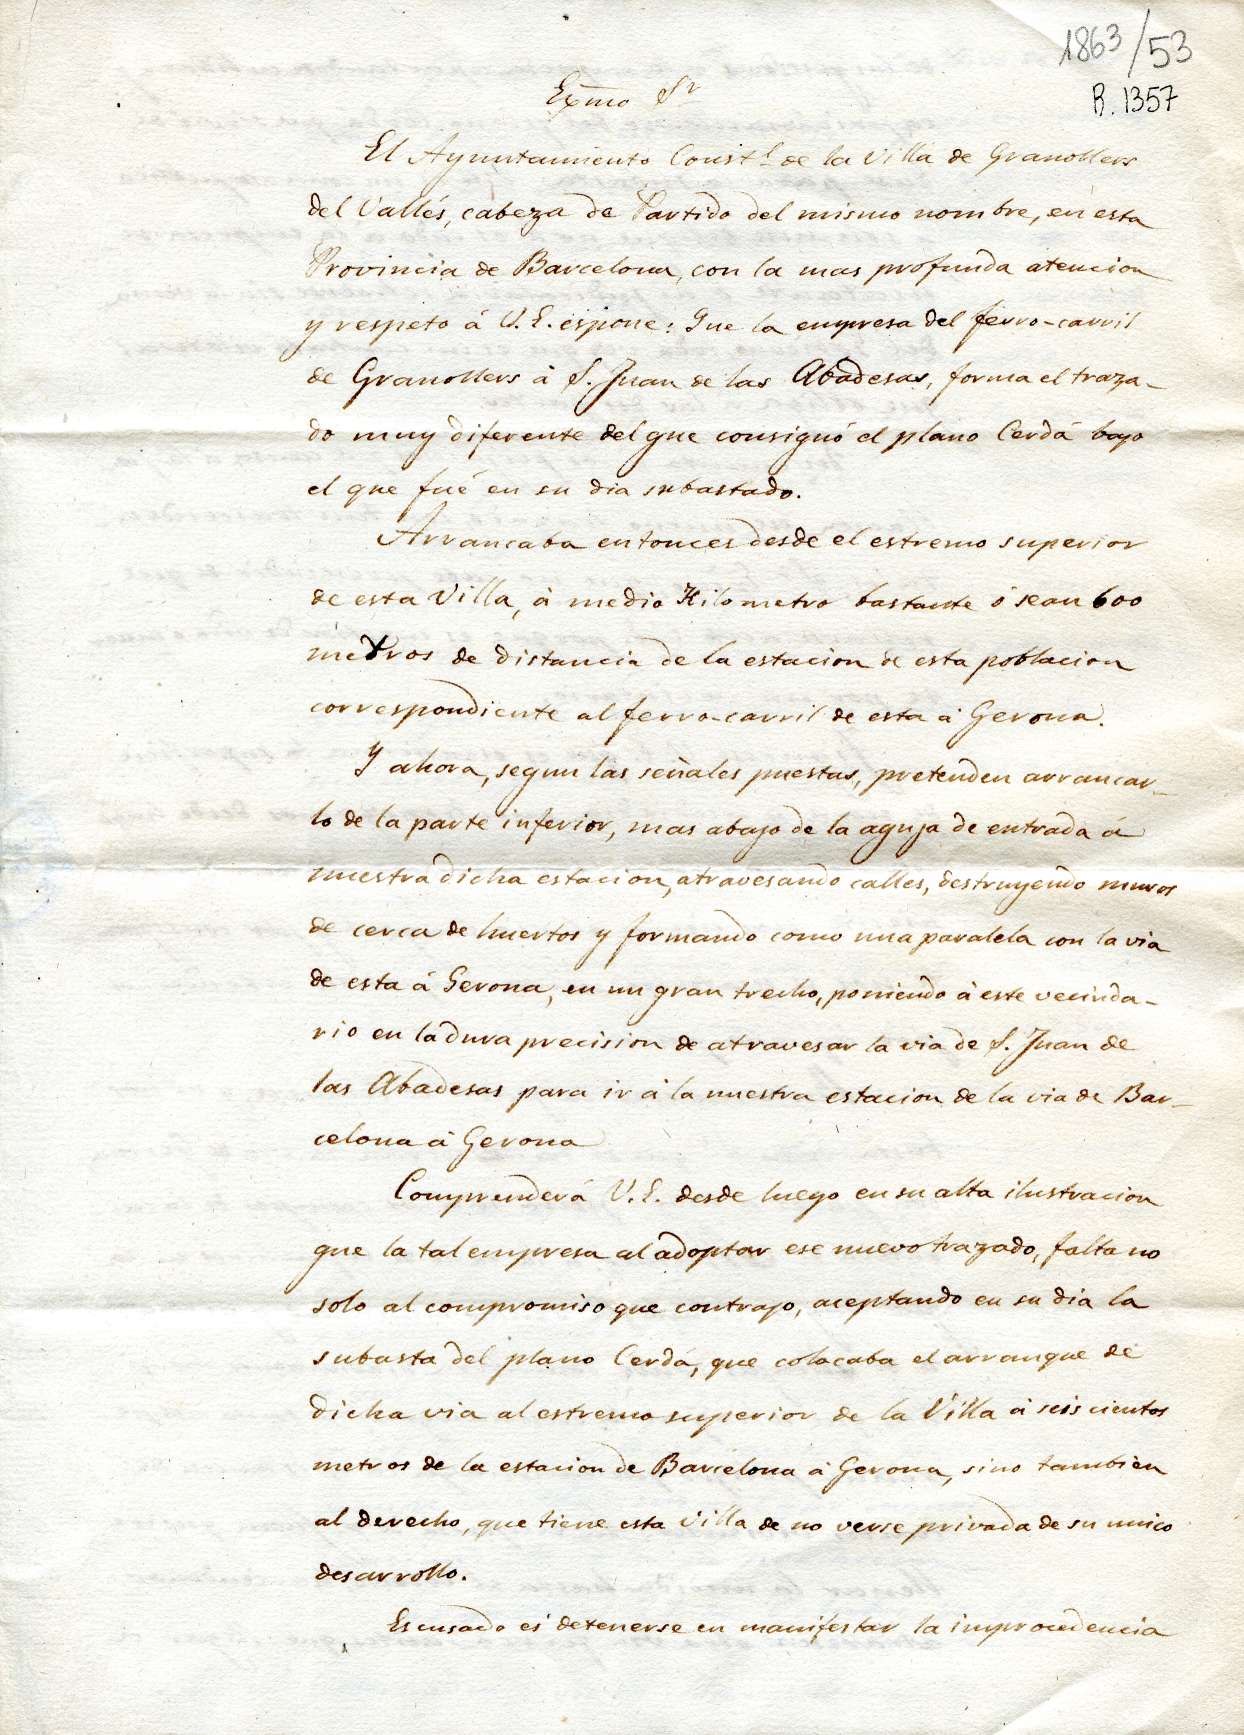 1863/53
R. 1357
Exmo Sr
El Ayuntamiento Constl. de la Villa de Granollers
del Vallés, cabeza de Partido del mismo nombre, en esta
Provincia de Barcelona, con la mas profunda atencion
y respeto á V. E. espone: Que la empresa del ferro-carril
de Granollers á S. Juan de las Abadesas, forma el traza-
do muy diferente del que consignó el plano Cerdá bajo
el que fué en su dia subastado.
Arrancaba entonces desde el estremo superior
de esta Villa, á medio Kilometro bastante ó sean 600
metros de distancia de la estacion de esta poblacion
correspondiente al ferro-carril de esta á Gerona.
Y ahora, segun las señales puestas, pretenden arrancar-
lo de la parte inferior, mas abajo de la aguja de entrada á
nuestra dicha estacion, atravesando calles, destruyendo muros
de cerca de huertos y formando como una paralela con la via
de esta á Gerona, en un gran trecho, poniendo á este vecinda-
rio en la dura precision de atravesar la via de S. Juan de
las Abadesas para ir á la nuestra estacion de la via de Bar-
celona á Gerona
Comprenderá V. E. desde luego en su alta ilustracion
que la tal empresa al adoptar ese nuevo trazado, falta no
solo al compromiso que contrajo, aceptando en su dia la
subasta del plano Cerdá, que colocaba el arranque de
dicha via al estremo superior de la Villa á seis cientos
metros de la estacion de Barcelona á Gerona, sino tambien
al derecho, que tiene esta Villa de no verse privada de su unico
desarrollo.
Escusado es detenerse en manifestar la improcedencia